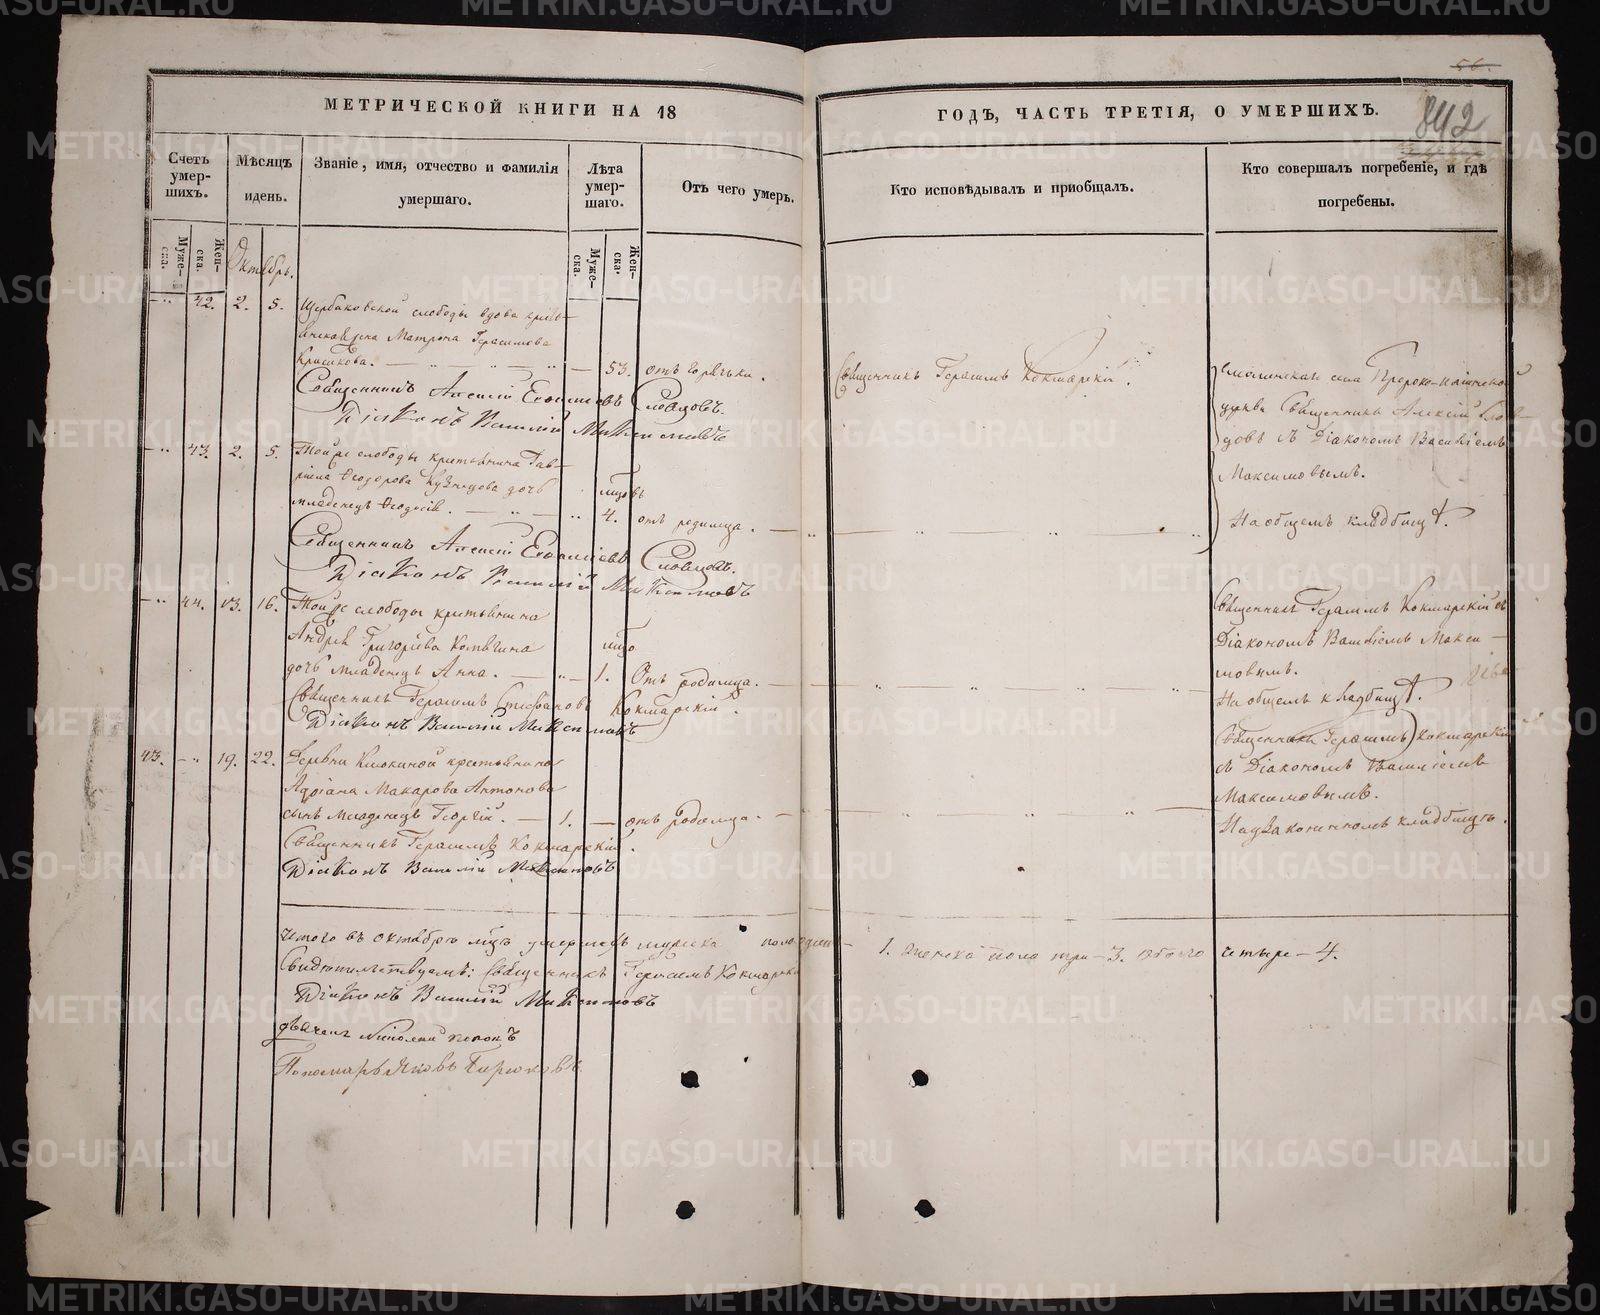 56.
842
МЕТРИЧЕСКОЙ КНИГИ НА 18
ГОДЪ, ЧАСТЬ ТРЕТІЯ, О УМЕРШИХЪ.
Счетъ умер-шихъ.
Муже-ска.
Жен-ска.
Мѣсяцъ идень.
Званіе, имя, отчество и фамилія
умершаго.
Лѣта умер-шаго.
Муже-ска.
Жен-ска.
Отъ чего умеръ.
Кто исповѣдывалъ и приобщалъ.
Кто совершалъ погребеніе, и гдѣ
погребены.
Октябрь.
42. 2. 5. Щербаковской слободы вдова кресть-
янская жена Матрона Герасимова
53. отъ горячьки.
Священникъ Алексій Словцовъ.
Діаконъ Василій Максимовъ
Священникъ Герасимъ Кокшарскій.
села Пророко-Илiинской
церкви Священникъ Алексій Слов-
цовъ съ Діакономъ Василіемъ
Максимовымъ.
На общемъ кладбищѣ.
43. 2. 5. Той же слободы крестьянина Гав-
ріила Ѳеодорова Кузнецова дочь
младенецъ Ѳеодосія. 4. отъ родимца.
Священникъ Алексій Словцовъ.
Діаконъ Василій Максимовъ
44. 13. 16. Той же слободы крестьянина
Андрея Григорьева
дочь младенецъ Анна. 1. Отъ родимца.
Священникъ Герасимъ Стефановъ Кокшарскій.
Діаконъ Василій Максимовъ
Священникъ Герасимъ Кокшарскій съ
Діакономъ Василіемъ Макси-
мовымъ.
На общемъ кладбищѣ.
43. 19. 22. Деревни крестьянина
Адріана Макарова Антонова
сынъ младенецъ Георгій. 1. отъ родимца.
Священникъ Герасимъ Кокшарскій.
Діаконъ Василій Максимовъ
Священникъ Герасимъ Кокшарскій
съ Діакономъ Василіемъ
Максимовымъ.
кладбищѣ.
Итого въ октябрѣ м҃цѣ умершихъ мужска пола одинъ – 1. женска пола три – 3. обоего четыре – 4.
Свидѣтельствуемъ: Священникъ Герасимъ Кокшарскій
Діаконъ Василій Максимовъ
Дьячекъ Николай Поповъ
Пономарь Яковъ Бирюковъ
METRIKI.GASO-URAL.RU